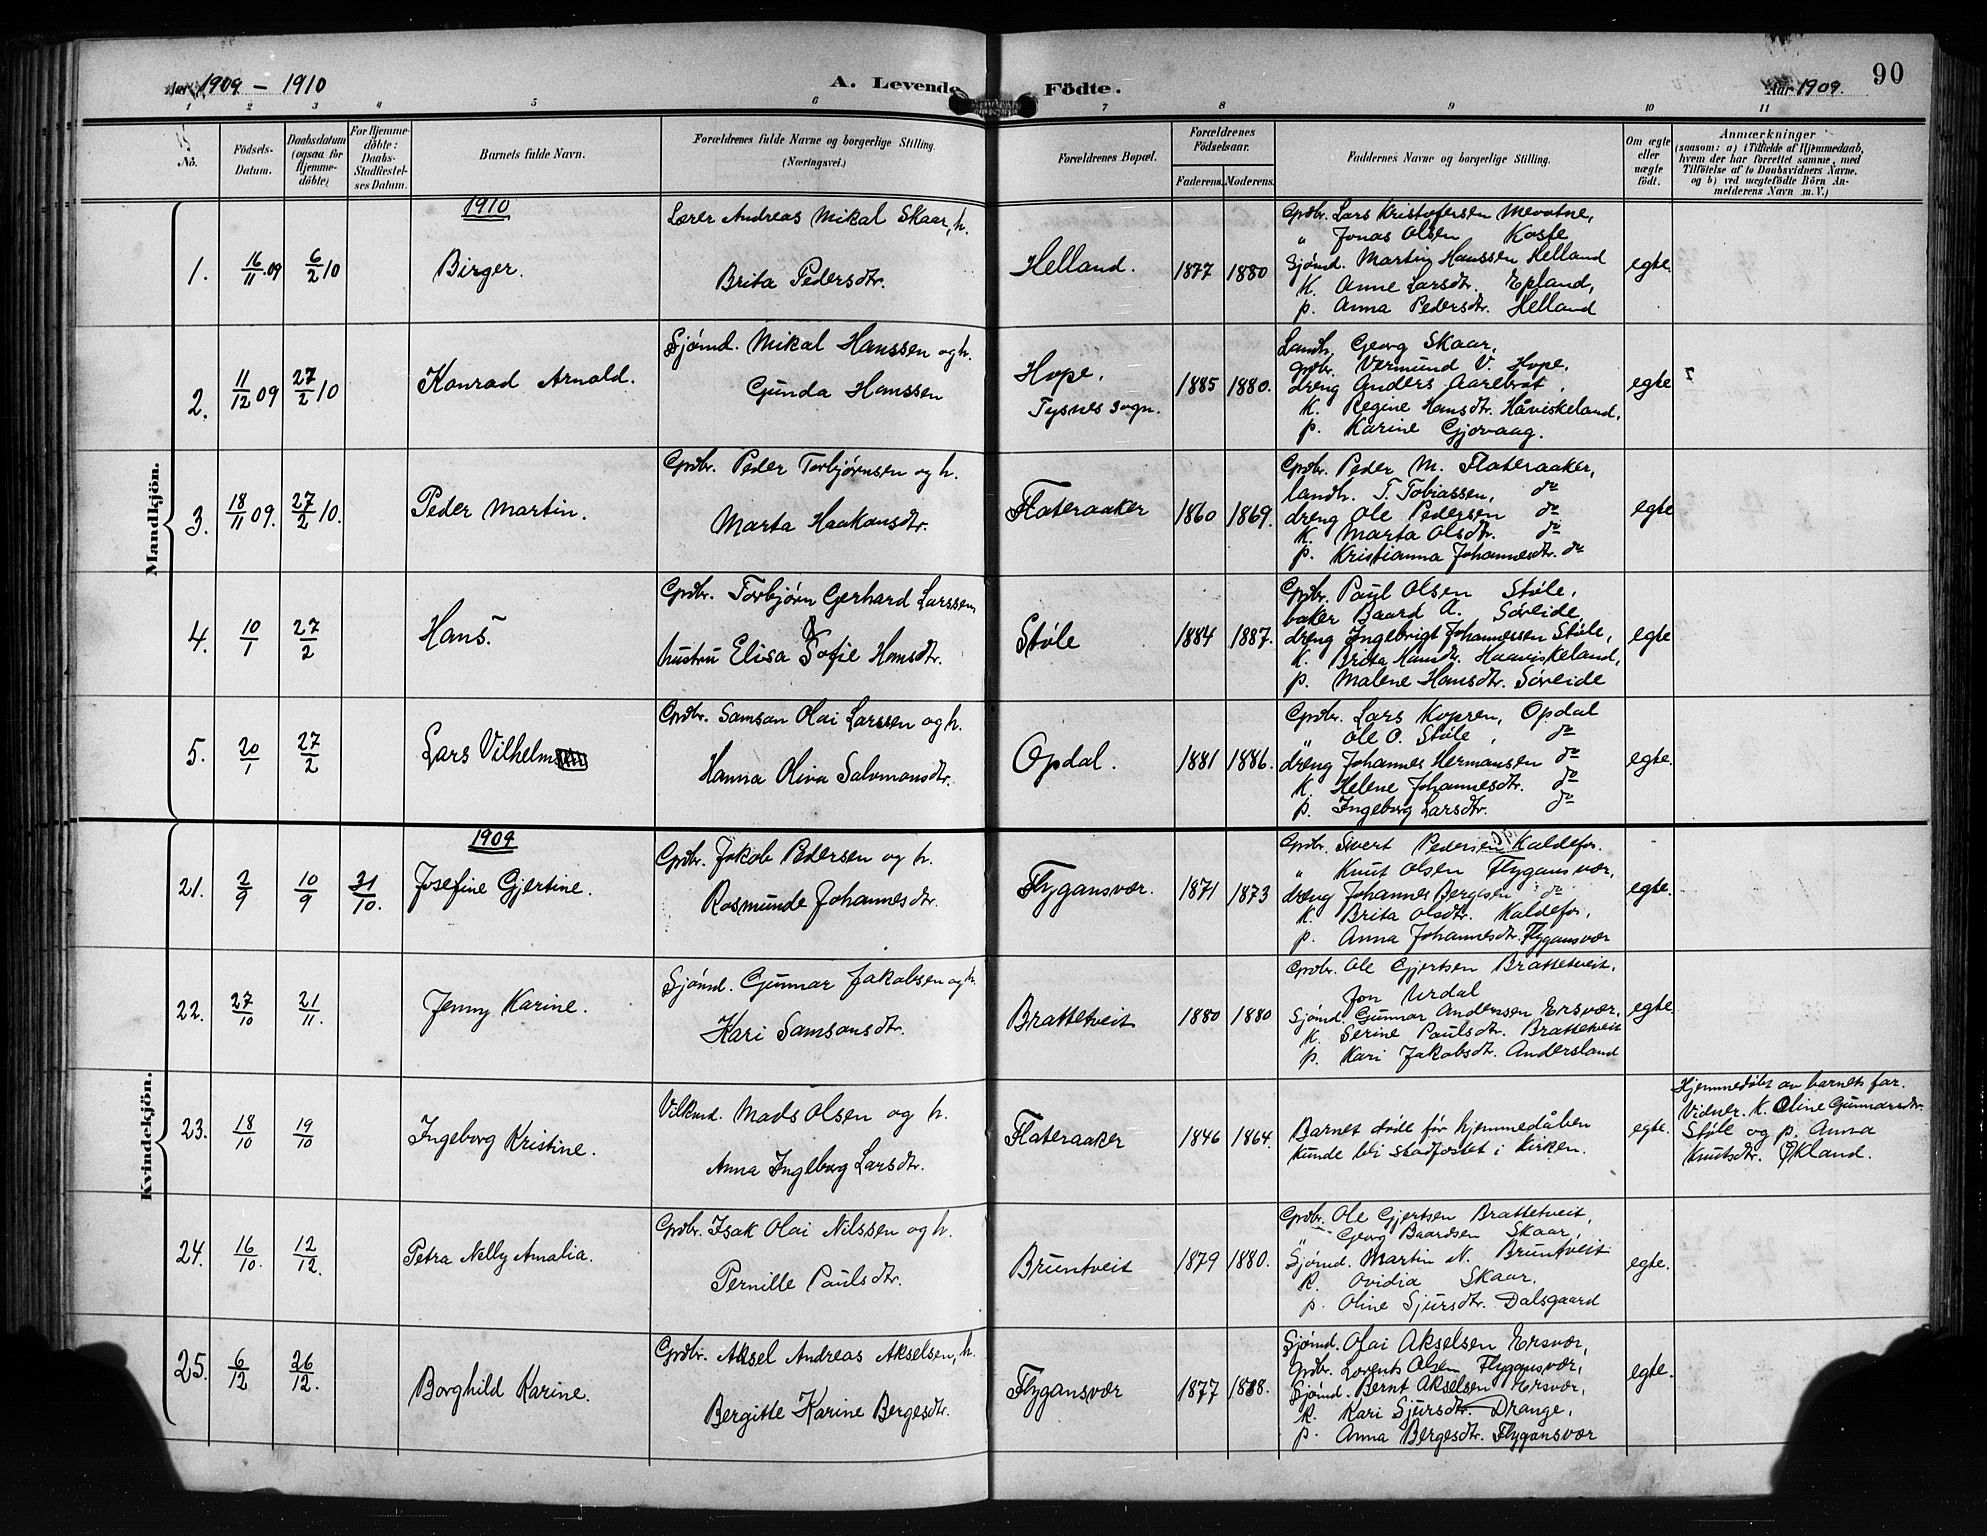 Aar 1909 – 1910
A. Levende Födte.
Aar 1909.
90
1 2 3 4 5 6 7 8 9 10 11
No.
Födsels-Datum.
Daabsdatum (ogsaa for Hjemme-döbte)
For Hjemme-döbte: Daabs-Stadfæstel-ses Datum.
Barnets fulde Navn.
Forældrenes fulde Navne og borgerlige Stilling. (Næringsvei.)
Forældrenes Bopæl.
Forældrenes Födselsaar.
Faderens. Moderens.
Faddernes Navne og borgerlige Stilling.
Om ægte eller uægte født.
Anmærkninger
(saasom: a) i Tilfælde af Hjemmedaab, hvem der har forrettet samme, med Tilföielse af to Daabsvidners Navne, og b) ved uægtefödte Börn An-melderens Navn m. V.)
Mandkjön.
1910
1. 16/11 09 6/2 10 Birger.
Lærer Andreas Mikal Skaar, h.
Brita Pedersdtr.
Helland. 1877 1880
Grdbr. Lars Kristofersen Mevatne,
" Jonas Olsen Koste
Sjømd. Martin Hanssen Helland
K. Anne Larsdtr. Epland,
p. Anna Pedersdtr. Helland
egte.
2. 11/12 09 27/2 10 Konrad Arnold.
Sjømd. Mikal Hanssen og h.
Gunda Hanssen
Hope, Tysnes sogn. 1885 1880.
Landh. Georg Skaar,
Grdbr. Vermund V. Hope,
dreng Anders Aarebrot,
K. Regine Hansdtr. Håviskeland,
p. Karine Gjovaag.
egte
3. 18/11 09. 27/2 10. Peder Martin.
Grdbr. Peder Torbjørnsen og h.
Marta Haakonsdtr.
Flateraaker 1860 1869.
Grdbr. Peder M. Flateraaker,
landh. T. Tobiassen, do
dreng Ole Pedersen do
K. Marta Olsdtr. do
p. Kristianna Johannesdtr. do
egte
4. 10/1 27/2 Hans.
Grdbr. Torbjørn Gerhard Larssen
hustru Elisa Sofie Hansdtr.
Støle 1884 1887.
Grdbr. Paul Olsen Støle,
baker Baard A. Søreide,
dreng Ingebrigt Johannessen Støle,
K. Brita Hansdtr. Haaviskeland,
p. Malene Hansdtr. Søreide
egte
5. 20/1 27/2 Lars Vilhelm
Grdbr. Samson Olai Larssen og h.
Hanna Oliva Salomonsdtr.
Opdal. 1881 1886.
Grdbr. Lars Kopren, Opdal
" Ole O. Støle, do
dreng Johannes Hermansen do
K. Helene Johannesdtr. do
p. Ingeborg Larsdtr. do
egte.
Kvindekjön.
1909
21. 2/9 10/9 31/10. Josefine Gjertine.
Grdbr. Jakob Pedersen og h.
Rasmunde Johannesdtr.
Flygansvær. 1871 1873
Grdbr. Sivert Pedersen Kaldefor.
" Knut Olsen Flygansvær,
dreng Johannes Bergesen do
K. Brita Olsdtr. Kaldefor,
p. Anna Johannesdtr. Flygansvær
egte.
22. 27/10 21/11. Jenny Karine.
Sjømd. Gunnar Jakobsen og h.
Kari Samsonsdtr.
Brattetveit 1880 1880
Grdbr. Ole Gjertsen Brattetveit,
Jon Urdal
Sjømd. Gunnar Anderssen Ersvær,
K. Serine Paulsdtr. Brattetveit
p. Kari Jakobsdtr. Andersland
egte.
23. 18/10 19/10 Ingeborg Kristine.
Vilkmd. Mads Olsen og h.
Anna Ingeborg Larsdtr.
Flateraaker 1846 1864.
Barnet døde før hjemmedåben
kunde bli stadfæstet i kirken.
egte.
Hjemmedøbt av barnets far.
Vidner. K. Oline Gunnarsdtr.
Støle og p. Anna
Knutsdtr. Økland.
24. 16/10. 12/12. Petra Nelly Amalia.
Grdbr. Isak Olai Nilssen og h.
Pernille Paulsdtr.
Bruntveit 1879 1880.
Grdbr. Ole Gjertsen Brattetveit,
" Georg Baardsen Skaar,
Sjømd. Martin N. Bruntveit
K. Ovidia Skaar.
p. Oline Sjursdtr. Dalsgaard
egte.
25. 6/12 26/12. Borghild Karine.
Grdbr. Aksel Andreas Akselsen, h.
Bergitte Karine Bergesdtr.
Flygansvær 1877 1888.
Sjømd. Olai Akselsen Ersvær,
Grdbr. Lorents Olsen Flygansvær,
Sjømd. Bernt Akselsen Ersvær,
K. Kari Sjursdtr. Drange,
p. Anna Bergesdtr. Flygansvær
egte.